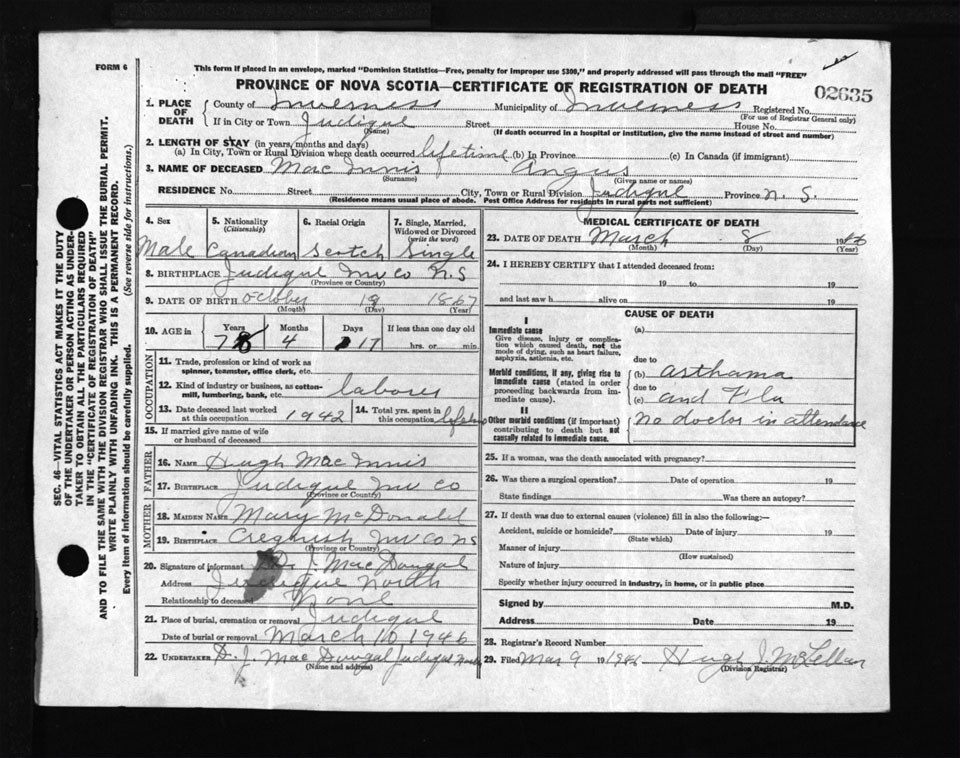 FORM 6
This form if placed in an envelope, marked "Dominion Statistics—Free, penalty for improper use $300," and properly addressed will pass through the mail "FREE"
PROVINCE OF NOVA SCOTIA—CERTIFICATE OF REGISTRATION OF DEATH
02635
1. PLACE OF DEATH { County of Inverness Municipality of Inverness Registered No.
(For use of Registrar General only)
If in City or Town Judique Street House No.
(Name) (If death occurred in a hospital or institution, give the name instead of street and number)
2. LENGTH OF STAY (in years, months and days)
(a) In City, Town or Rural Division where death occurred lifetime (b) In Province (c) In Canada (if immigrant)
3. NAME OF DECEASED Mac Innis Angus
(Surname) (Given name or names)
RESIDENCE No. Street City, Town or Rural Division Judique Province N. S.
(Residence means usual place of abode. Post Office Address for residents in rural parts not sufficient)
4. Sex 5. Nationality (Citizenship) 6. Racial Origin 7. Single, Married, Widowed or Divorced (write the word)
Male Canadian Scotch Single
8. BIRTHPLACE Judique Inv Co N.S
(Province or Country)
9. DATE OF BIRTH October 19 1867
(Month) (Day) (Year)
10. AGE in Years Months Days If less than one day old
78 4 17 hrs. or min.
OCCUPATION
11. Trade, profession or kind of work as spinner, teamster, office clerk, etc.
12. Kind of industry or business, as cotton-mill, lumbering, bank, etc. labores
13. Date deceased last worked at this occupation 1942 14. Total yrs. spent in this occupation
15. If married give name of wife or husband of deceased
FATHER
16. NAME Hugh Mac Innis
17. BIRTHPLACE Judique Inv Co
(Province or Country)
MOTHER
18. MAIDEN NAME Mary McDonald
19. BIRTHPLACE Cregnish Inv Co NS
(Province or Country)
20. Signature of informant J. Mac Dougal
Address Judique North
Relationship to deceased None
21. Place of burial, cremation or removal Judique
Date of burial or removal March 10 1946
22. UNDERTAKER D. J. Mac Dougal Judique North
(Name and address)
MEDICAL CERTIFICATE OF DEATH
23. DATE OF DEATH March 8 19
(Month) (Day) (Year)
24. I HEREBY CERTIFY that I attended deceased from:
19 to 19
and last saw h alive on 19
CAUSE OF DEATH
I
Immediate cause (a)
Give disease, injury or complication which caused death, not the mode of dying, such as heart failure, asphyxia, asthenia, etc.
due to
Morbid conditions, if any, giving rise to immediate cause (stated in order proceeding backwards from immediate cause).
(b) asthama
due to
(c) and Flu
II
Other morbid conditions (if important) contributing to death but not causally related to immediate cause.
No doctor in attendence
25. If a woman, was the death associated with pregnancy?
26. Was there a surgical operation? Date of operation 19
State findings Was there an autopsy?
27. If death was due to external causes (violence) fill in also the following:—
Accident, suicide or homicide? Date of injury 19
(State which)
Manner of injury
(How sustained)
Nature of injury
Specify whether injury occurred in industry, in home, or in public place
Signed by M.D.
Address Date 19
28. Registrar's Record Number
29. Filed Mar 9 19 1946 Hugh J. McLellan
(Division Registrar)
SEC. 46—VITAL STATISTICS ACT MAKES IT THE DUTY
OF THE UNDERTAKER OR PERSON ACTING AS UNDER-
TAKER TO OBTAIN ALL THE PARTICULARS REQUIRED
IN THE "CERTIFICATE OF REGISTRATION OF DEATH"
AND TO FILE THE SAME WITH THE DIVISION REGISTRAR WHO SHALL ISSUE THE BURIAL PERMIT.
WRITE PLAINLY WITH UNFADING INK. THIS IS A PERMANENT RECORD.
Every item of information should be carefully supplied. (See reverse side for instructions.)